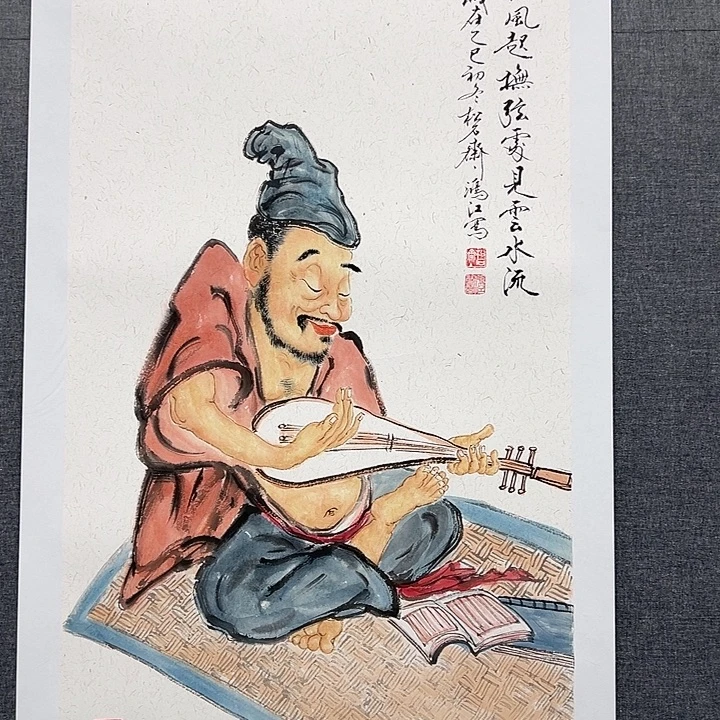 風起撫弦處見雲水流
歲在乙巳初冬松石齋鴻江寫